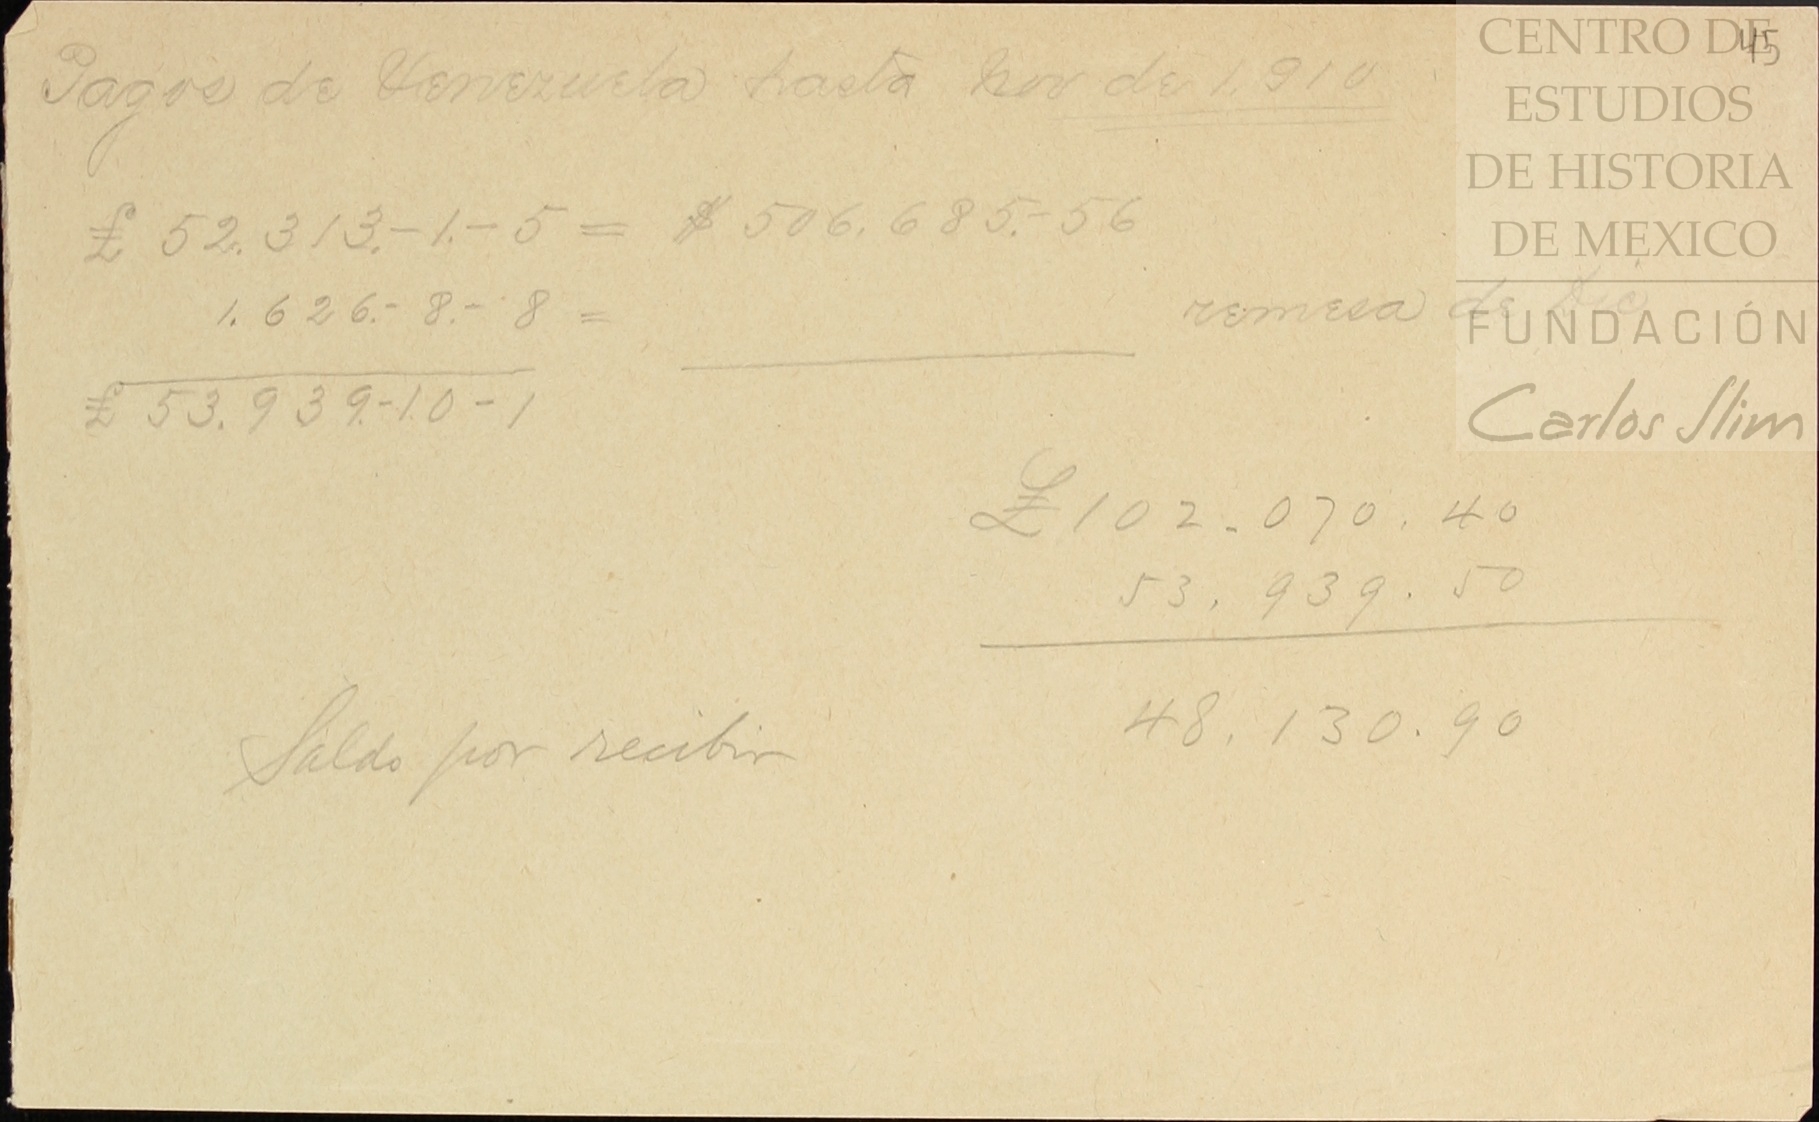 45
Pagos de Venezuela hasta Nov de 1.910
£ 52.313.-1.-5 = $ 506.685.-56
1.626.-8.-8 = remesa de Dic
£ 53.939.-10-1
£ 102.070.40
53.939.50
Saldo por recibir 48.130.90
CENTRO DE
ESTUDIOS
DE HISTORIA
DE MEXICO
FUNDACIÓN
Carlos Slim